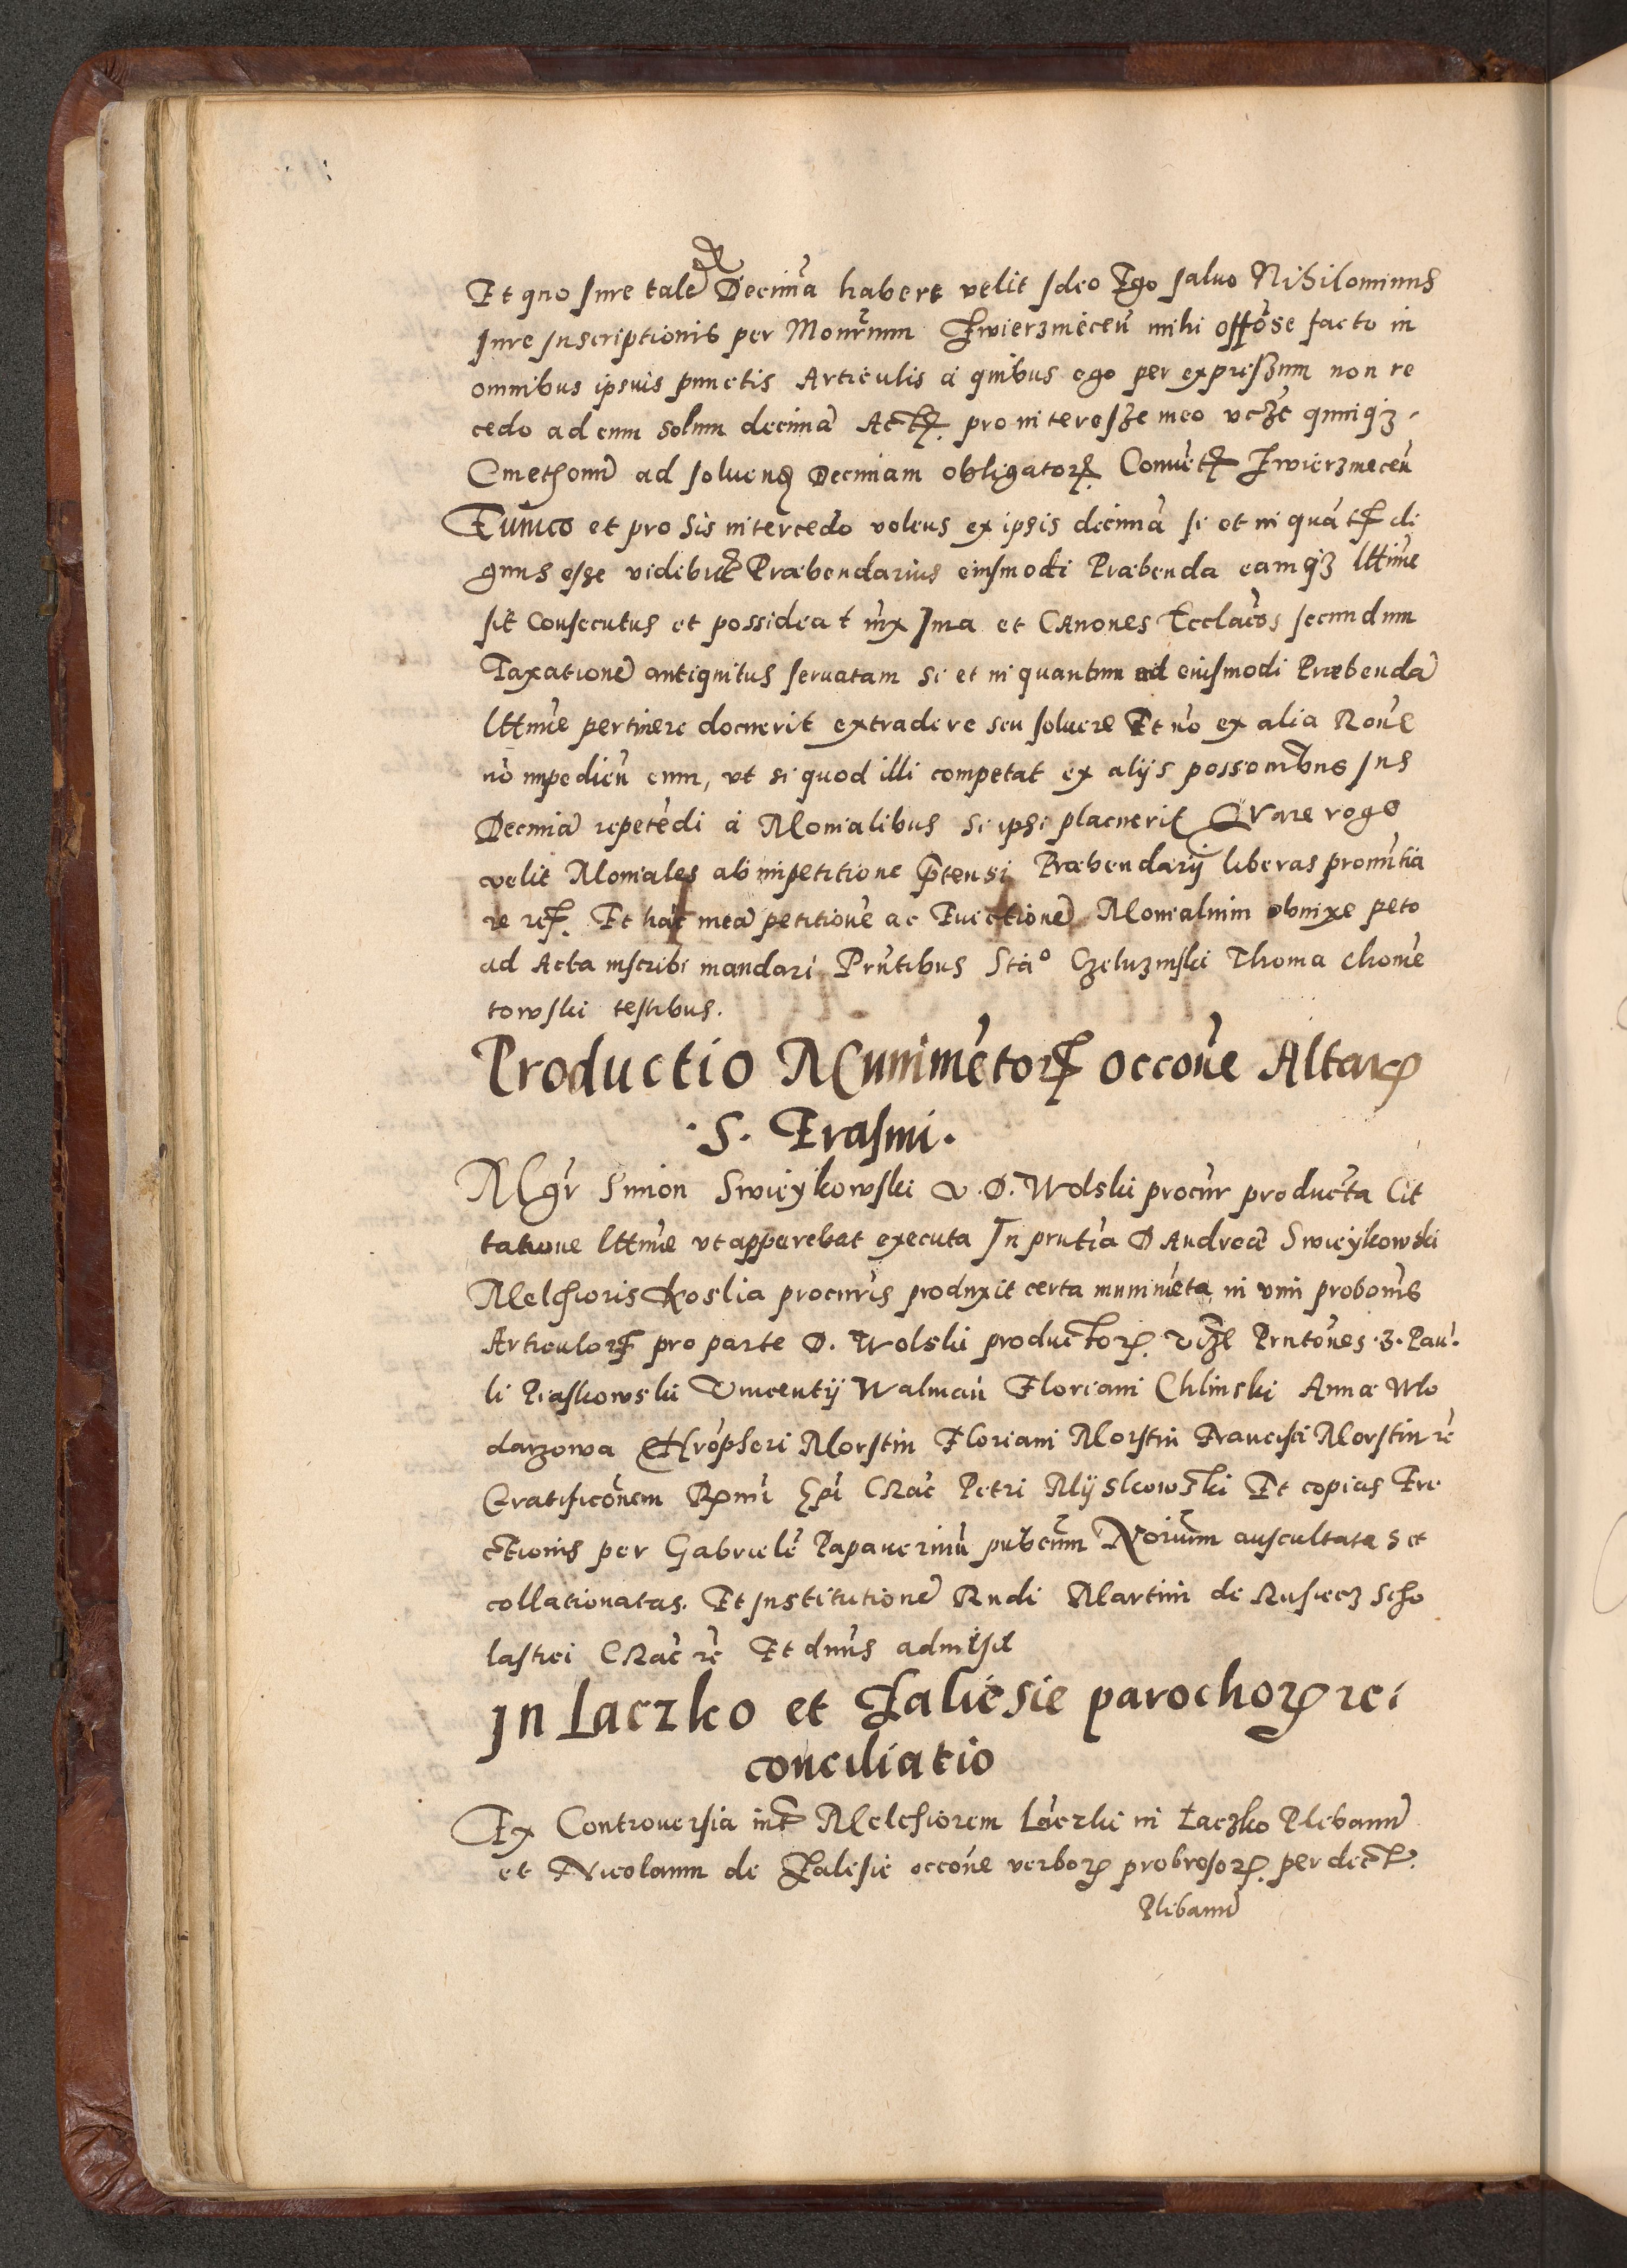 Et quo Jure talē Decimā habere velit Ideo Ego saluo Nihilominus
Jure Inscriptionis per Monrium Zwierzmiceñ mihi offōse facto in
omnibus ipsius punctis Articulis á quibus ego per expressum non re
cedo ad eum solum decimā pro interesse meo vcze quinqz
Cmethonū ad soluend Decimam obligator Conuēt Zwierzmeceñ
Euinco et pro his intercedo volens ex ipsis decimā si et in quāt di
gnus esse videbit Præbendarius eiusmodi Præbenda eamqz lttīme
sit Consecutus et possideat iux Jura et Canones Eccl̄acos secundum
Taxationē antiquitus seruatam si et in quantum ad eiusmodi Præbendā
lttīme pertinere docuerit extradere seu soluere Et nō ex alia Rōne
nō impedieñ eum, vt si quod illi competat ex alijs possessoribus Jus
Decimā repetēdi á Monialibus si ipsi placuerit Quare rogo
velit Moniales ab impetitione p̄tensi Præbendarij liberas pronūtia
re Et hāc meā petitione ac Euictionē Monialium obnixe peto
ad Acta inscribi mandari Prn̄tibus Stā° Czeluzinski Thoma Chome
towski testibus.
Productio Munimētor occōne Altaris
S. Erasmi.
Mgr Simon Swieykowski V. D. Wolski procūr producta Cit
tatione lttīme vt apparebat executa In prn̄tia D Andreæ Swieykowski
Melchioris Koslia procūris produxit certa munimēta in vim probōnis
Articulor pro parte D. Wolski productor. vize Prn̄tōnes .3. Pau
li Piaskowski Vincentij Walman Floriani Chlinski Annæ Wlo
darzowa Chrōpheri Morstin Floriani Morstin Francisci Morstin rē
Gratificōnem Rmi Ep̄i Crac Petri Myszkowski Et copias Ere
ctionis per Gabrielē Papauerinū pub̄cum Norium auscultatas et
collationatas. Et Institutionē Rndi Martini de Rusiecz Scho
lastici Crac rē Et dnus admisit
In Laczko et Zaliesie parochor re
conciliatio
Ex Controuersia int Melchiorem Laczki in Laczko Plebanū
et Nicolaum de Zalesie occōne verbor probrosor per dect
Plibanū